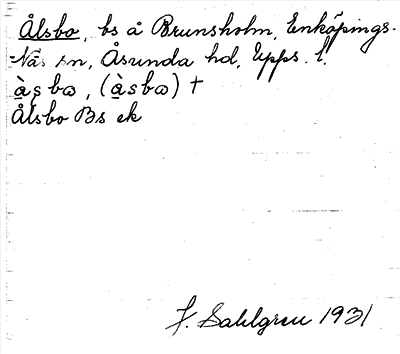 Ålsbo, bs å Brunsholm, Enköpings-
Näs sn, Åsunda hd, Upps. l.
àṣbω, (àsbω) †
Ålsbo Bs ek
J. Sahlgren 1931